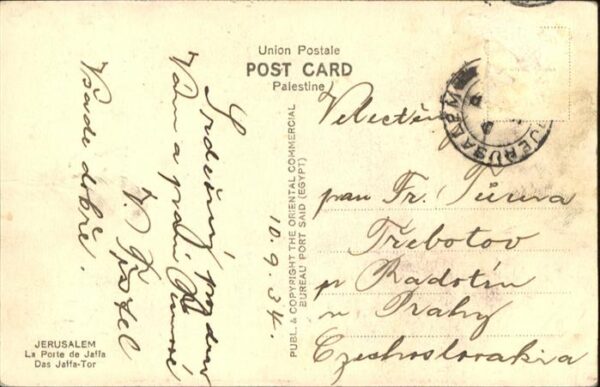 Union Postale
POST CARD
Palestine
Srdečný pozdrav
Vám a paní Tůmové
V.
Všude dobře.
10.9.34.
PUBL. & COPYRIGHT THE ORIENTAL COMMERCIAL
BUREAU PORT SAID (EGYPT)
JERUSALEM
pan Fr. Tůma
Třebotov
pr Radotín
u Prahy
Czechoslovakia
JERUSALEM
La Porte de Jaffa
Das Jaffa-Tor